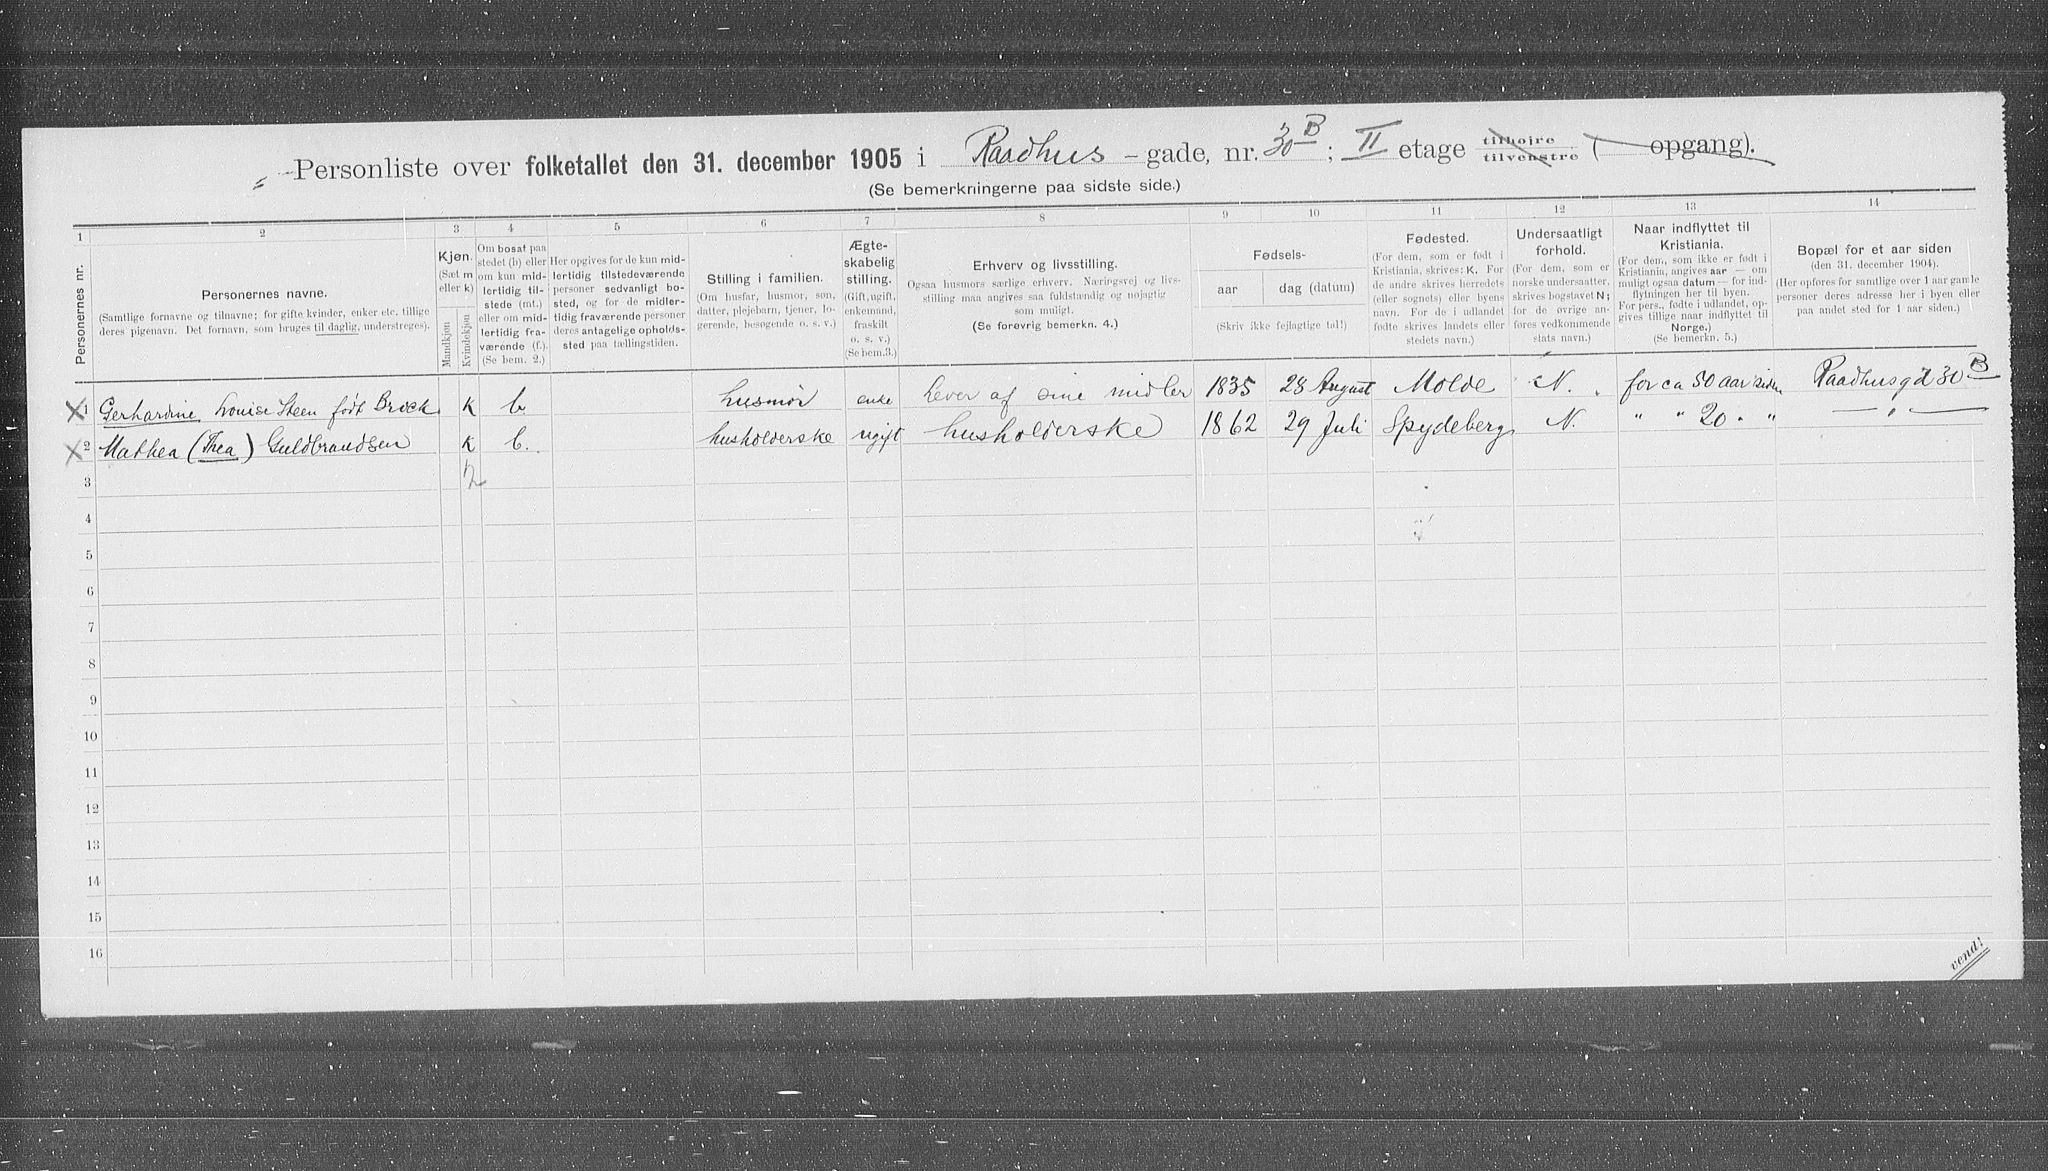 Personliste over folketallet den 31. december 1905 i Raadhus -gade, nr. 30 B ; II etage tilhøire tilvenstre ( opgang).
(Se bemerkningerne paa sidste side.)
1 2 3 4 5 6 7 8 9 10 11 12 13 14
Personernes nr.
Personernes navne.
(Samtlige fornavne og tilnavne; for gifte kvinder, enker etc. tillige
deres pigenavn. Det fornavn, som bruges til daglig, understreges).
Kjøn.
(Sæt m
eller k)
Mandkjøn
Kvindekjøn
Om bosat paa
stedet (b) eller
om kun mid-
lertidig til-
stede (mt.)
eller om mid-
lertidig fra-
værende (f.).
(Se bem. 2.)
Her opgives for de kun mid-
lertidig tilstedeværende
personer sedvanligt bo-
sted, og for de midler-
tidig fraværende personer
deres antagelige opholds-
sted paa tællingstiden.
Stilling i familien.
(Om husfar, husmor, søn,
datter, plejebarn, tjener, lo-
gerende, besøgende o. s. v.)
Ægte-
skabelig
stilling.
(Gift, ugift,
enkemand,
fraskilt
o. s. v.)
(Se bem.3.)
Erhverv og livsstilling.
Ogsaa husmors særlige erhverv. Næringsvej og livs-
stilling maa angives saa fuldstændig og nøjagtig
som muligt.
(Se forøvrig bemerkn. 4.)
Fødsels-
aar
dag (datum)
(Skriv ikke fejlagtige tal!)
Fødested.
(For dem, som er født i
Kristiania, skrives: K. For
de andre skrives herredets
(eller sognets) eller byens
navn. For de i udlandet
fødte skrives landets eller
stedets navn.)
Undersaatligt
forhold.
(For dem, som er
norske undersaatter,
skrives bogstavet N;
for de øvrige an-
føres vedkommende
stats navn.)
Naar indflyttet til
Kristiania.
(For dem, som ikke er født i
Kristiania, angives aar — om
muligt ogsaa datum — for ind-
flytningen her til byen.
For pers., fødte i udlandet, op-
gives tillige naar indflyttet til
Norge.)
(Se bemerkn. 5.)
Bopæl for et aar siden
(den 31. december 1904).
(Her opføres for samtlige over 1 aar gamle
personer deres adresse her i byen eller
paa andet sted for 1 aar siden.)
1 Gerhardine Louise Steen født Brock K b. husmor enke Lever af sine midler 1835 28 August Molde N. for ca 50 aar siden Raadhusgd 30 B
2 Mathea (Thea) Guldbrandsen K b. husholderske ugift husholderske 1862 29 Juli Spydeberg N. " " 20 " " — " —
3 2
4
5
6
7
8
9
10
11
12
13
14
15
16
vend!